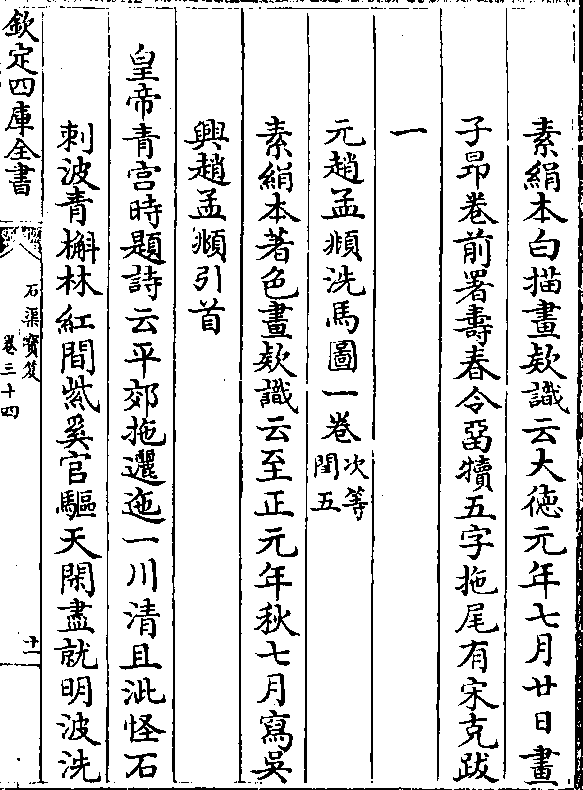 素絹本白描畫欵識云大徳元年七月廿日畫
子昂卷前署壽春令留犢五字拖尾有宋克跋
一
元趙孟頫洗馬圖一卷次等閏五
素絹本著色畫欵識云至正元年秋七月寫吳
興趙孟頫引首
皇帝青宫時題詩云平郊拖邐迤一川清且泚怪石
刺波青槲林紅間紫奚官驅天閑盡就明波洗
欽定四庫全書
石渠寳笈
卷三十四
十一